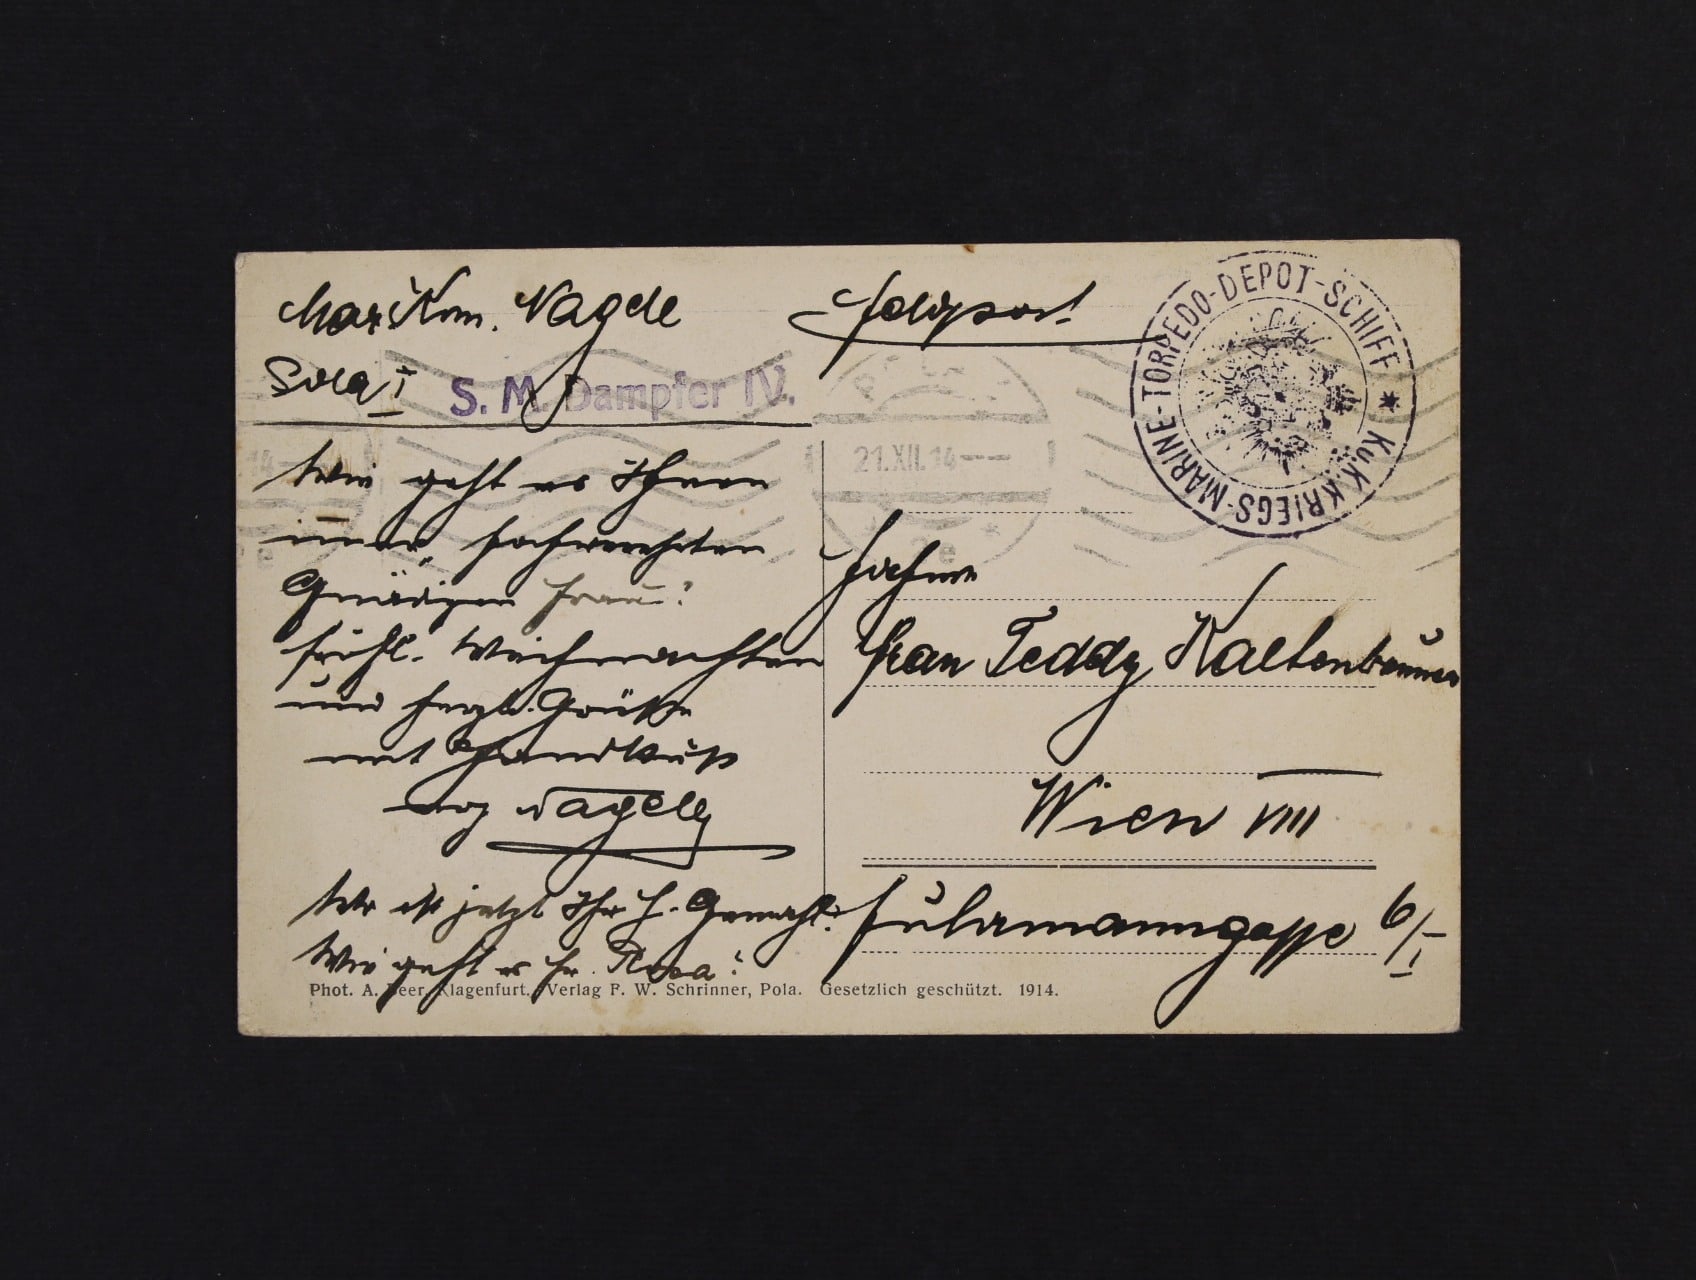 MarKom. Nagele
Feldpost
Pola I
S. M. Dampfer IV.
K.u.K. KRIEGS-MARINE-TORPEDO-DEPOT-SCHIFF
21.XII.14
2e
Wie geht es Ihnen
immer, hochverehrten
Gnädigen Frau?
Fröhl. Weihnachten
und herzl. Grüße
mit Handkuß
Nagele
Wo ist jetzt Ihr H. Gemahl?
Wie geht es Fr.
Hochw.
Frau Teddy Kaltenbrunner
Wien VIII
Fuhrmanngasse 6/I
Phot. A. Beer, Klagenfurt. Verlag F. W. Schrinner, Pola. Gesetzlich geschützt. 1914.